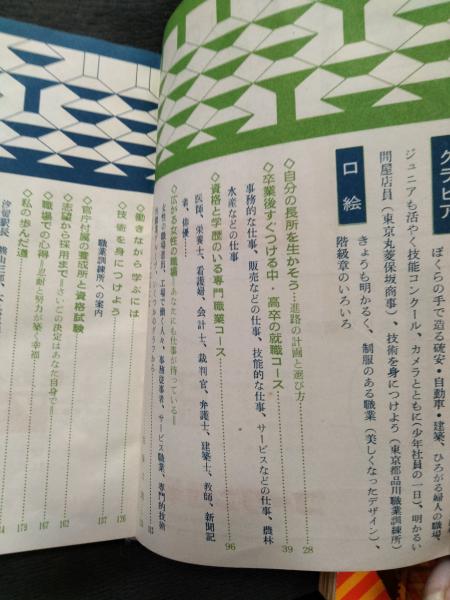 グラビア
ぼくらの手で造る硫安・自動車・建築、ひろがる婦人の職場、
ジュニアも活やく技能コンクール、カメラとともに(少年社員の一日)、明かるい
問屋店員(東京丸菱保坂商事)、技術を身につけよう(東京都品川職業訓練所)
口絵
きょうも明かるく、制服のある職業(美しくなったデザイン)、
階級章のいろいろ
◇自分の長所を生かそう…進路の計画と選び方 28
◇卒業後すぐつける中・高卒の就職コース 39
事務的な仕事、販売などの仕事、技能的な仕事、サービスなどの仕事、農林
水産などの仕事
◇資格と学歴のいる専門職業コース 96
医師、栄養士、看護婦、会計士、裁判官、弁護士、建築士、教師、新聞記
者、俳優……
◇広がる女性の職場=あなたにも仕事が待っている=
女性の職場進出、工場で働く人々、事務従事者、サービス職業、専門的技術
◇働きながら学ぶには
◇技術を身につけよう 126
職業訓練所への案内
◇官庁付属の養成所と資格試験 137
◇志望から採用まで=さいごの決定はあなた自身で= 162
◇職場での心得=忍耐と努力が築く幸福 167
◇私の歩んだ道 179
汐留駅長